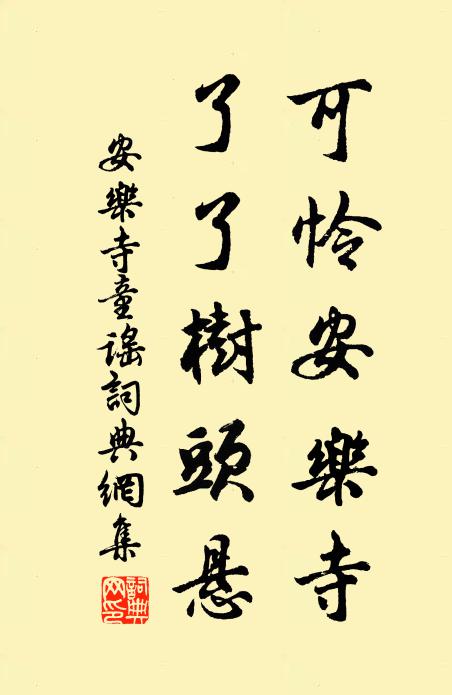 可怜安樂寺
了了樹頭悬
安樂寺童謠詞典網集
詞典
网印